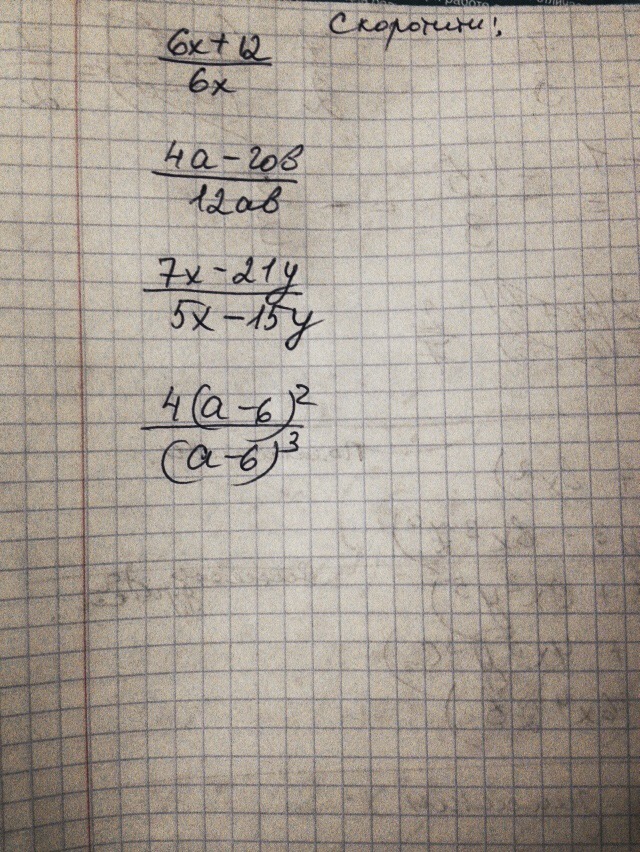 Скоротити:
6x+12
6x
4a-20b
12ab
7x-21y
5x-15y
4(a-6)²
(a-6)³